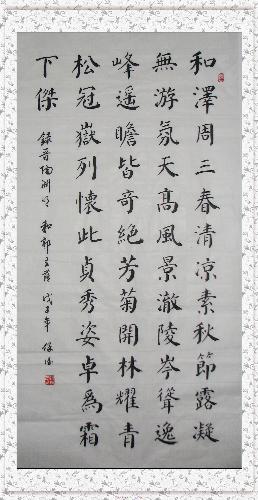 和澤周三春清涼素秋節露凝
無游氛天高風景澈陵岑聳逸
峰遥瞻皆奇絕芳菊開林耀青
松冠嶽列懷此貞秀姿卓為霜
下傑
錄晉陶淵明 和郭主簿 戊子年